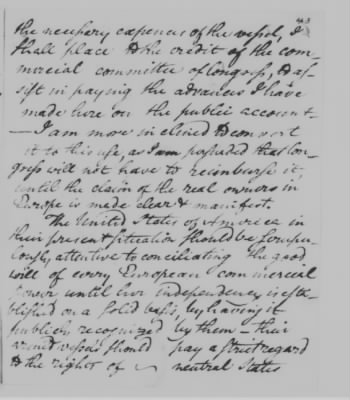 the necessary expences of the vessel, I
shall place to the credit of the com
mercial committee of Congress, to as-
sist in paying the advances I have
made here on the public account-
— I am more inclined to convert
it to this use, as I am persuaded that Con-
gress will not have to reimburse it,
until the claim of the real owners in
Europe is made clear & manifest.
The United States of America in
their present situation should be scrupu-
lously attentive to conciliating the good
will of every European commercial
power until her independency is esta-
blished on a solid basis, by having it
publicly recognized by them - their
armed vessels should pay a strict regard
to the rights of neutral States